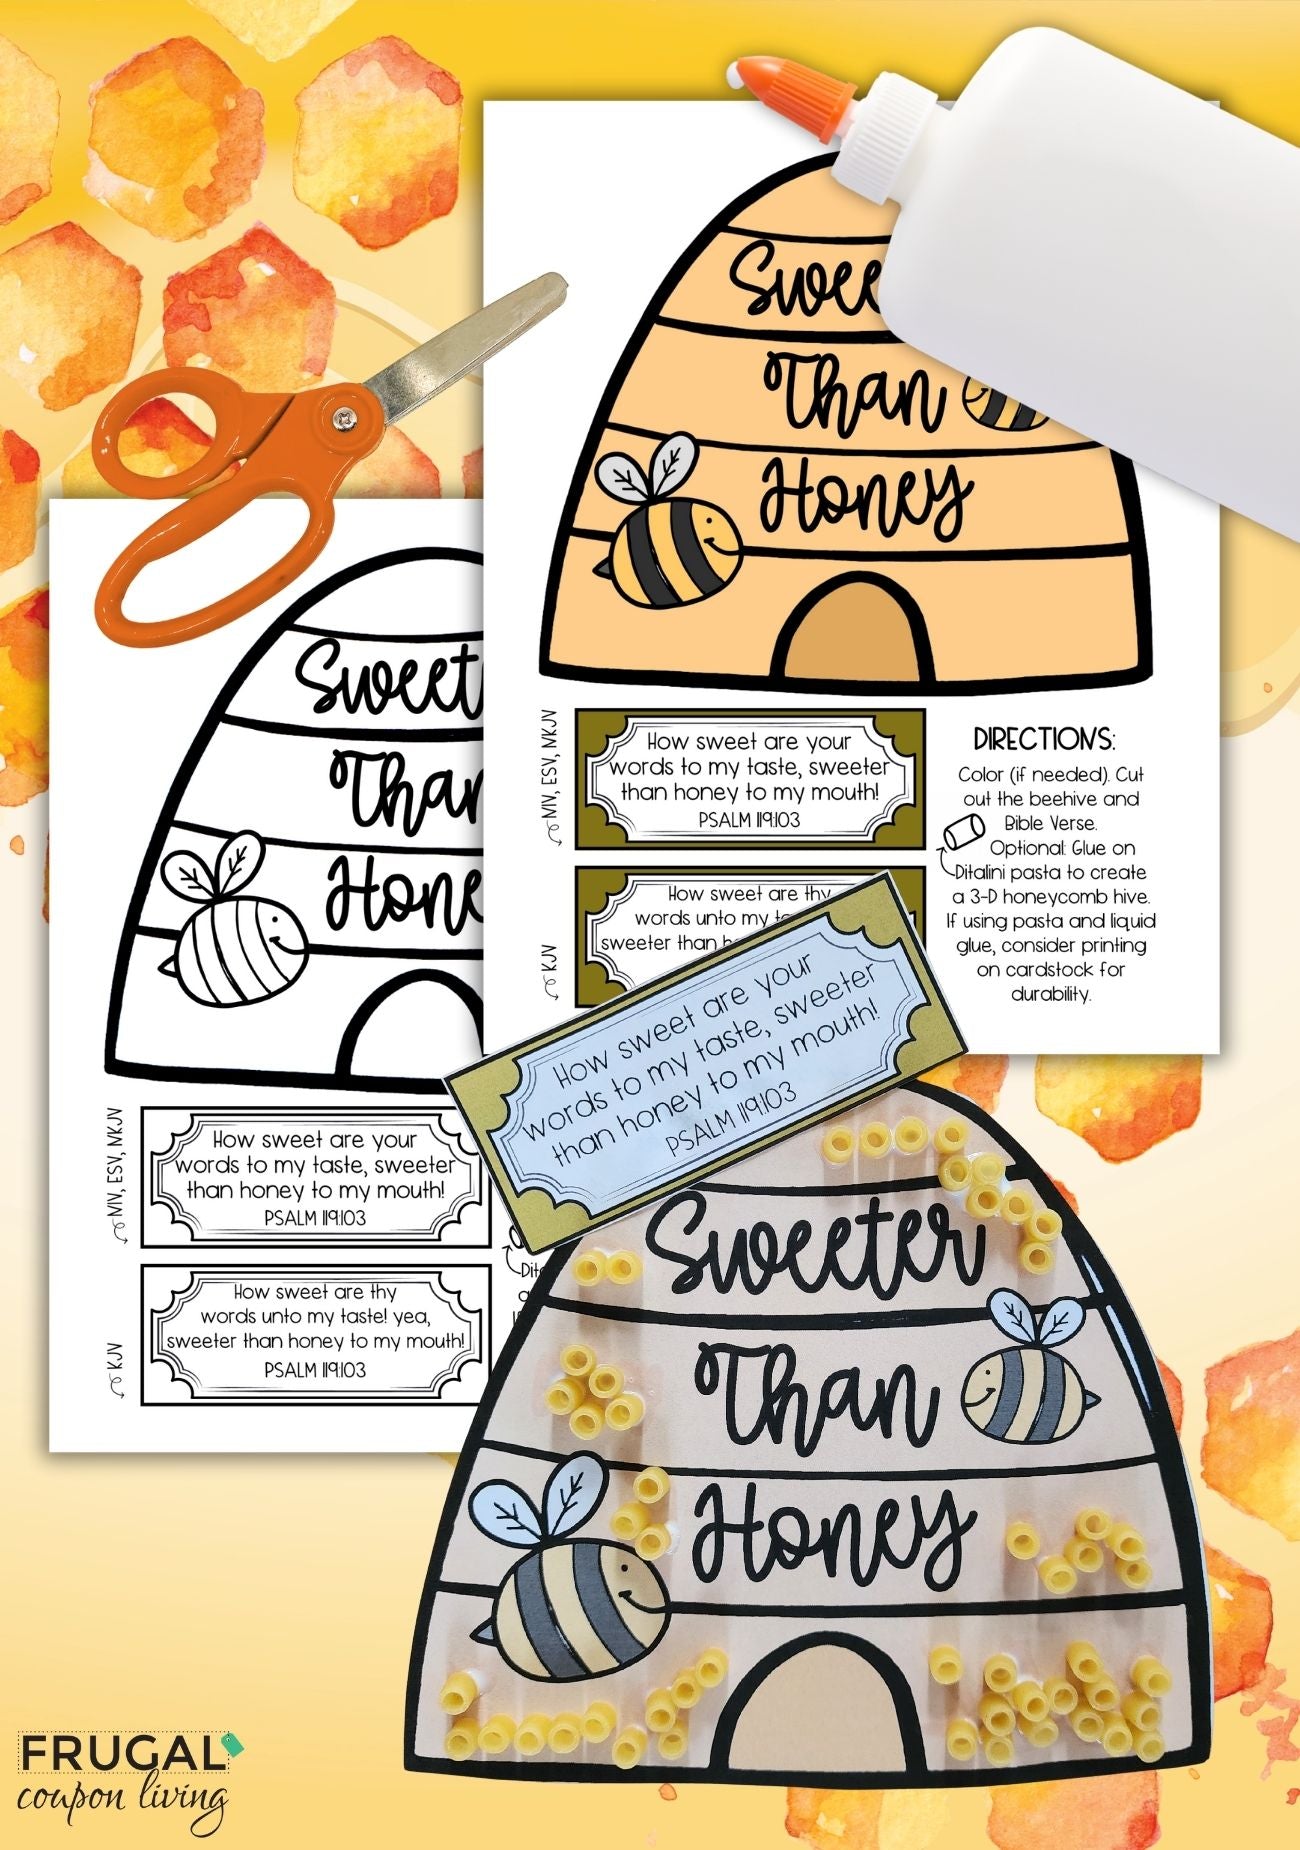 Sweet
Than
Honey
NIV, ESV, NKJV
How sweet are your
words to my taste, sweeter
than honey to my mouth!
PSALM 119:103
KJV
How sweet are thy
words unto my
sweeter than
DIRECTIONS:
Color (if needed). Cut
out the beehive and
Bible Verse.
Optional: Glue on
Ditalini pasta to create
a 3-D honeycomb hive.
If using pasta and liquid
glue, consider printing
on cardstock for
durability.
Sweet
Than
Hone
NIV, ESV, NKJV
How sweet are your
words to my taste, sweeter
than honey to my mouth!
PSALM 119:103
KJV
How sweet are thy
words unto my taste! yea,
sweeter than honey to my mouth!
PSALM 119:103
How sweet are your
words to my taste, sweeter
than honey to my mouth!
PSALM 119:103
Sweeter
Than
Honey
FRUGAL
coupon living